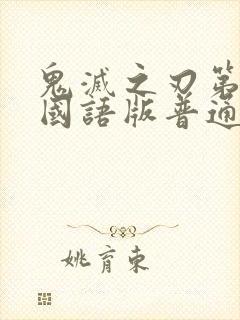 鬼滅之刃第
國語版普通
姚育東